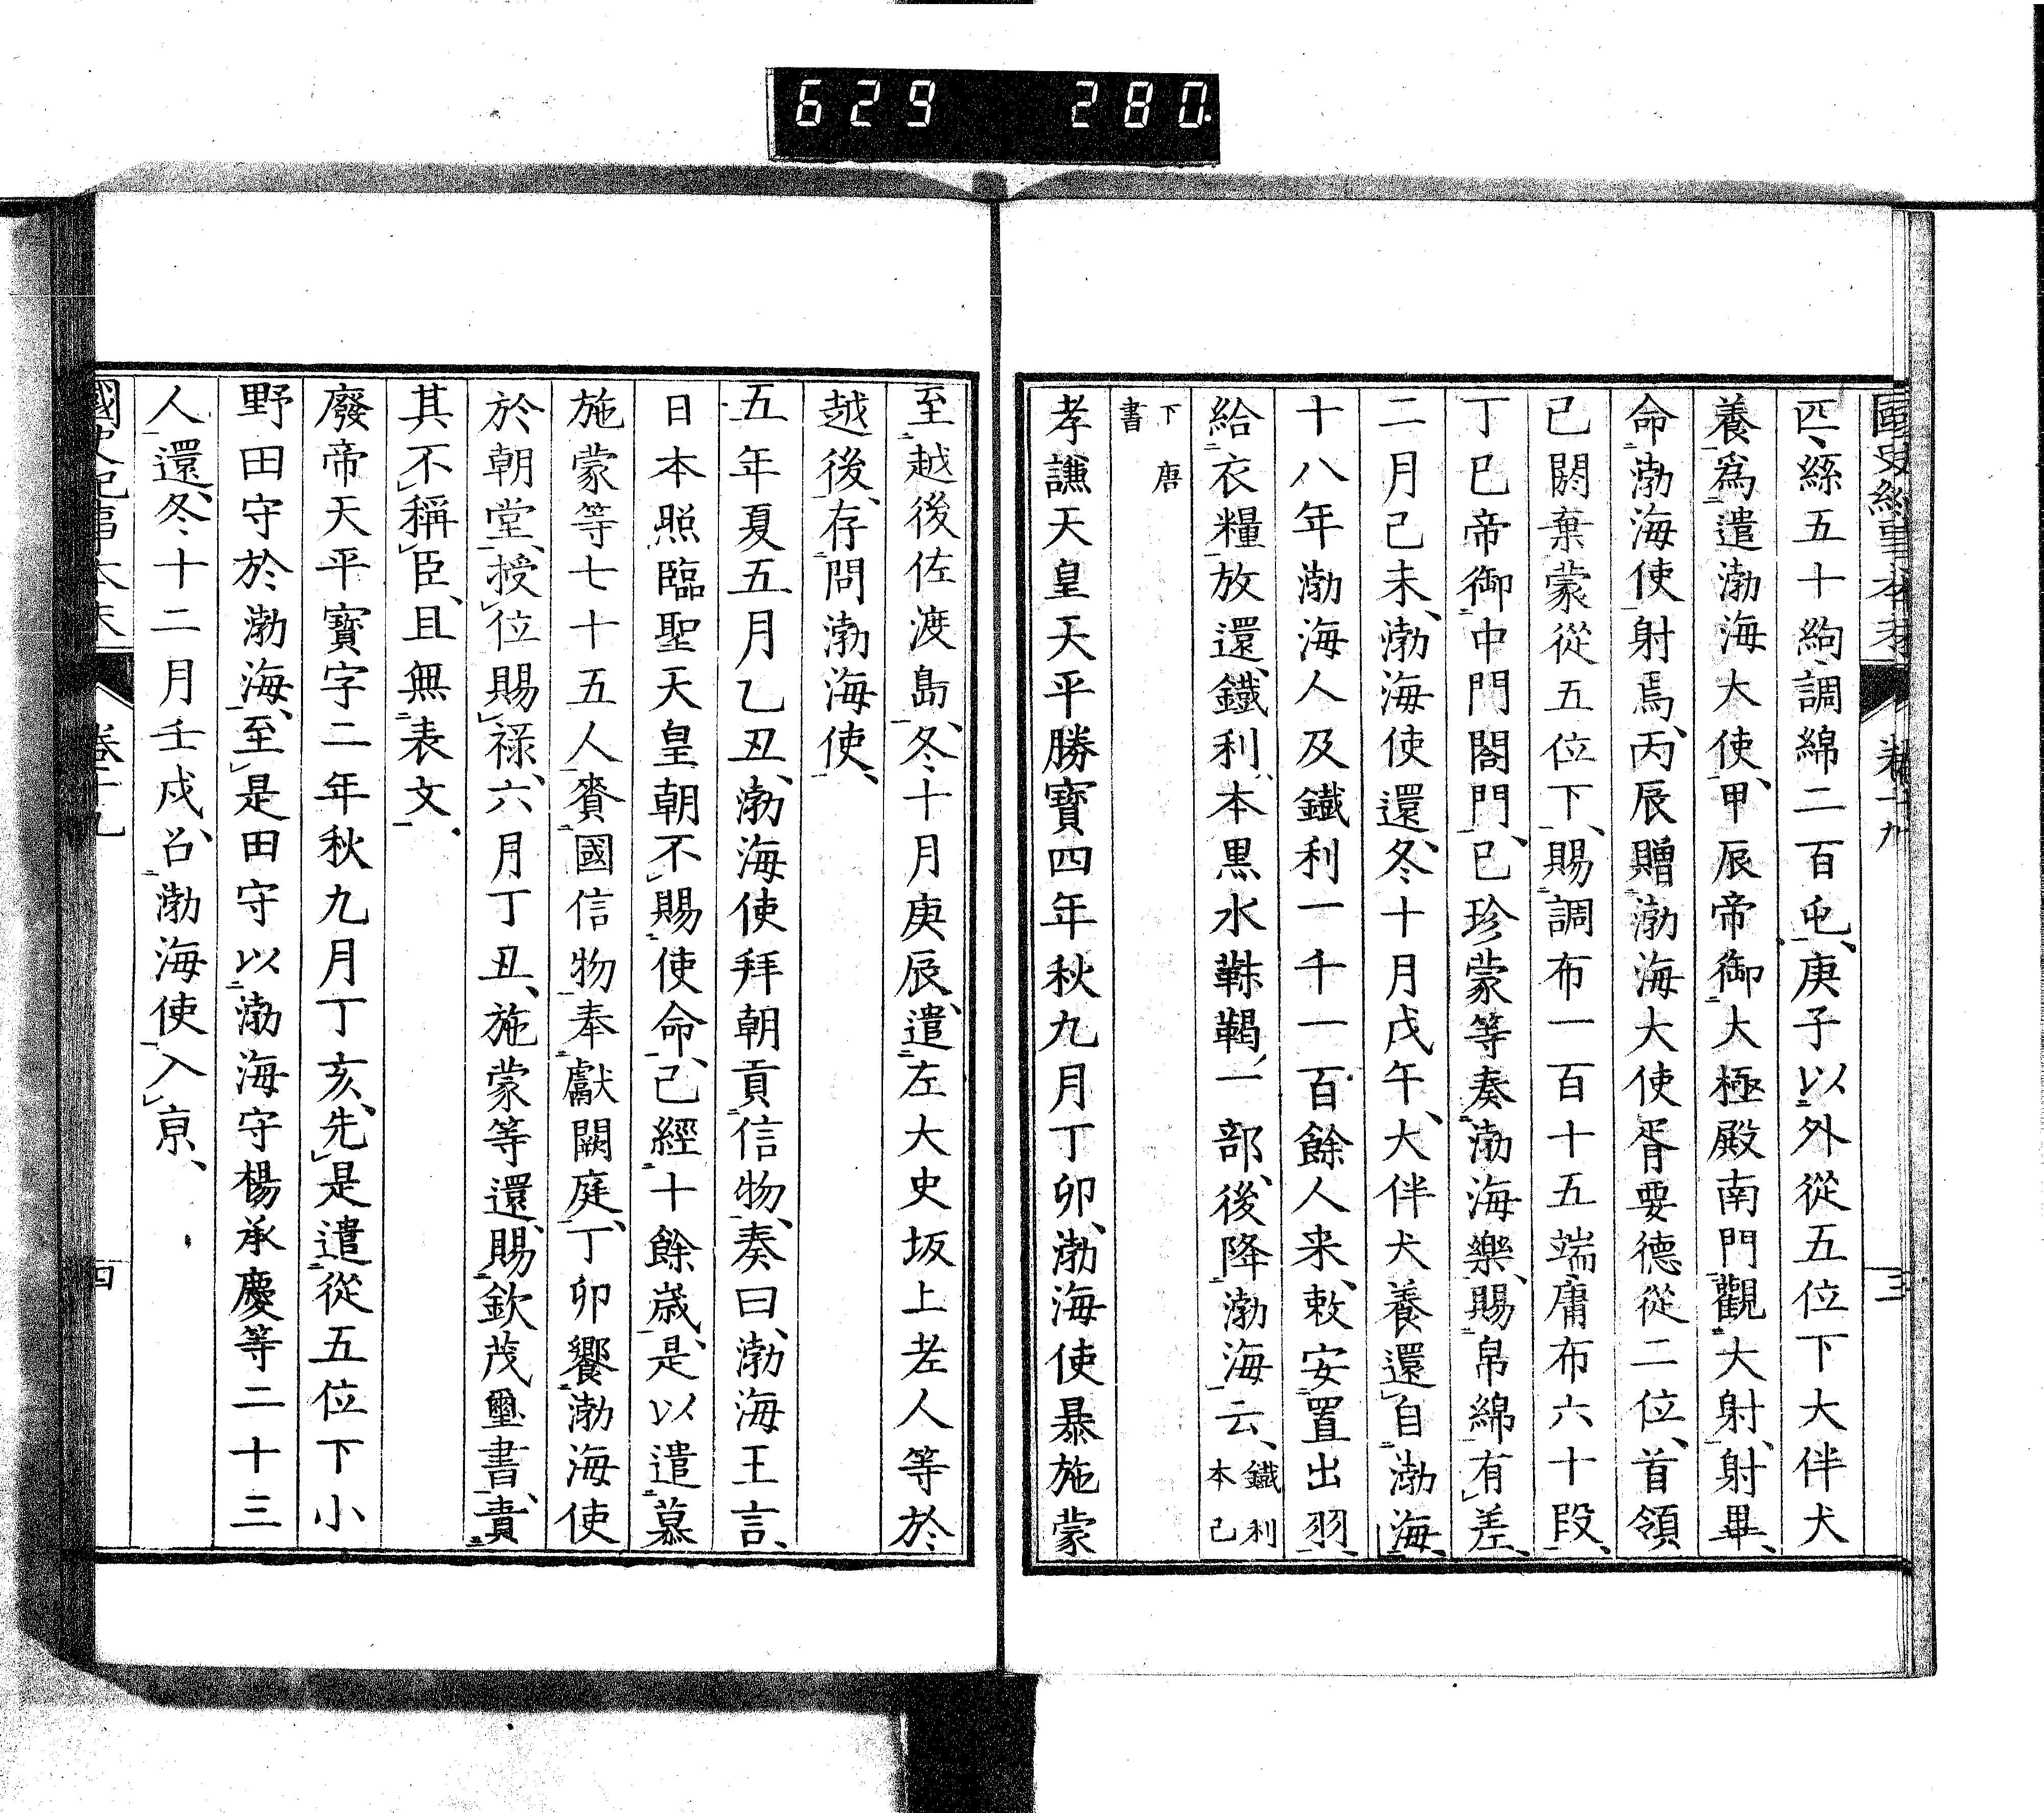 629 280
國史紀事本末 卷十九 三
匹、絲五十絇、調綿二百屯、庚子以外從五位下大伴犬
養爲遣渤海大使、甲辰帝御大極殿南門觀大射、射畢、
命渤海使射焉、丙辰贈渤海大使胥要德從二位、首領
已閼棄蒙從五位下、賜調布一百十五端庸布六十段、
丁巳帝御中門閤門、已珍蒙等奏渤海樂、賜帛綿有差、
二月己未、渤海使還、冬十月戊午、大伴犬養還自渤海、
十八年渤海人及鐵利一千一百餘人来、敕安置出羽、
給衣糧放還、鐵利、本黒水靺鞨、一部、後降渤海云、鐵利本已
下唐書
孝謙天皇天平勝寶四年秋九月丁卯、渤海使暴施蒙
至越後佐渡島、冬十月庚辰、遣左大史坂上老人等於
越後、存問渤海使、
五年夏五月乙丑、渤海使拜朝貢信物、奏曰、渤海王言、
日本照臨聖天皇朝不賜使命、已經十餘歳、是以遣慕
施蒙等七十五人賷國信物奉獻闕庭、丁卯饗渤海使
於朝堂、授位賜祿、六月丁丑、施蒙等還、賜欽茂璽書、責
其不稱臣、且無表文、
廢帝天平寶字二年秋九月丁亥、先是遣從五位下小
野田守於渤海、至是田守以渤海守楊承慶等二十三
人還、冬十二月壬戌、召渤海使入京、
國史紀事本末 卷十九 四